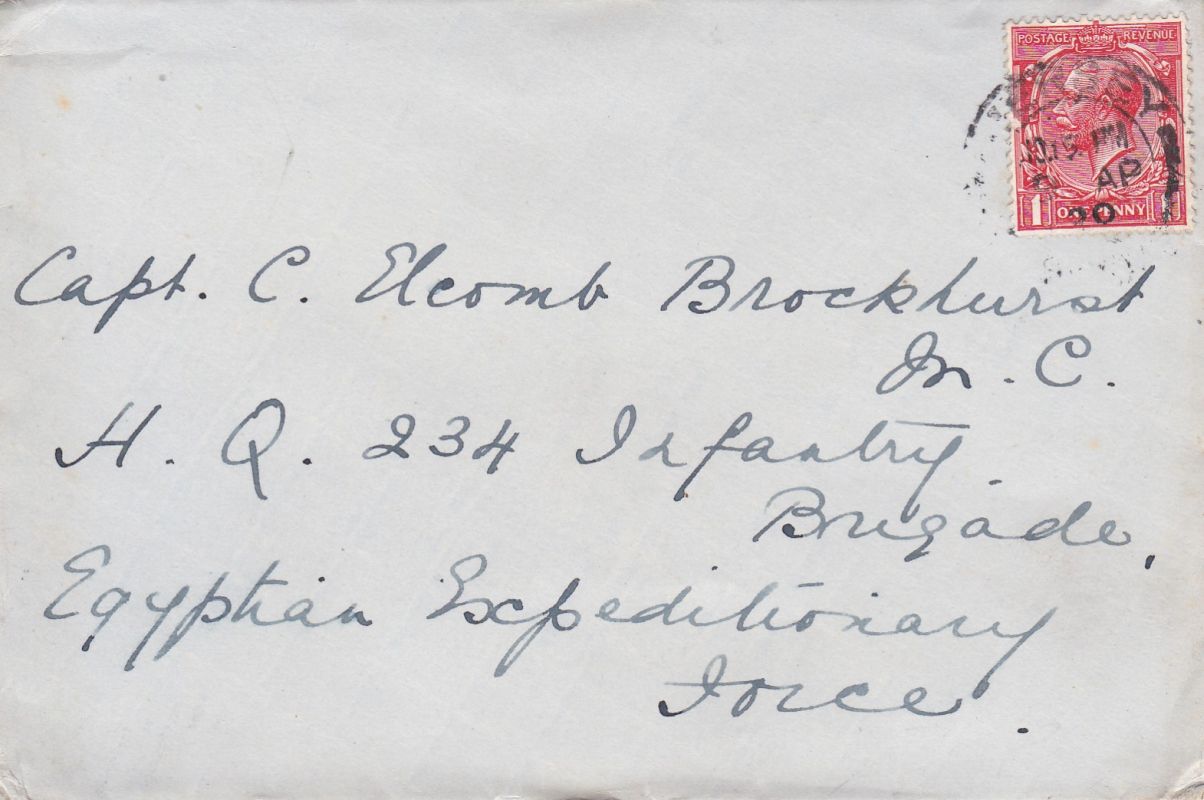 POSTAGE REVENUE
10.15 PM
AP
20
1 ONE PENNY 1
Capt. C. Elcomb Brockhurst
M.C.
H.Q. 234 Infantry
Brigade,
Egyptian Expeditionary
Force.